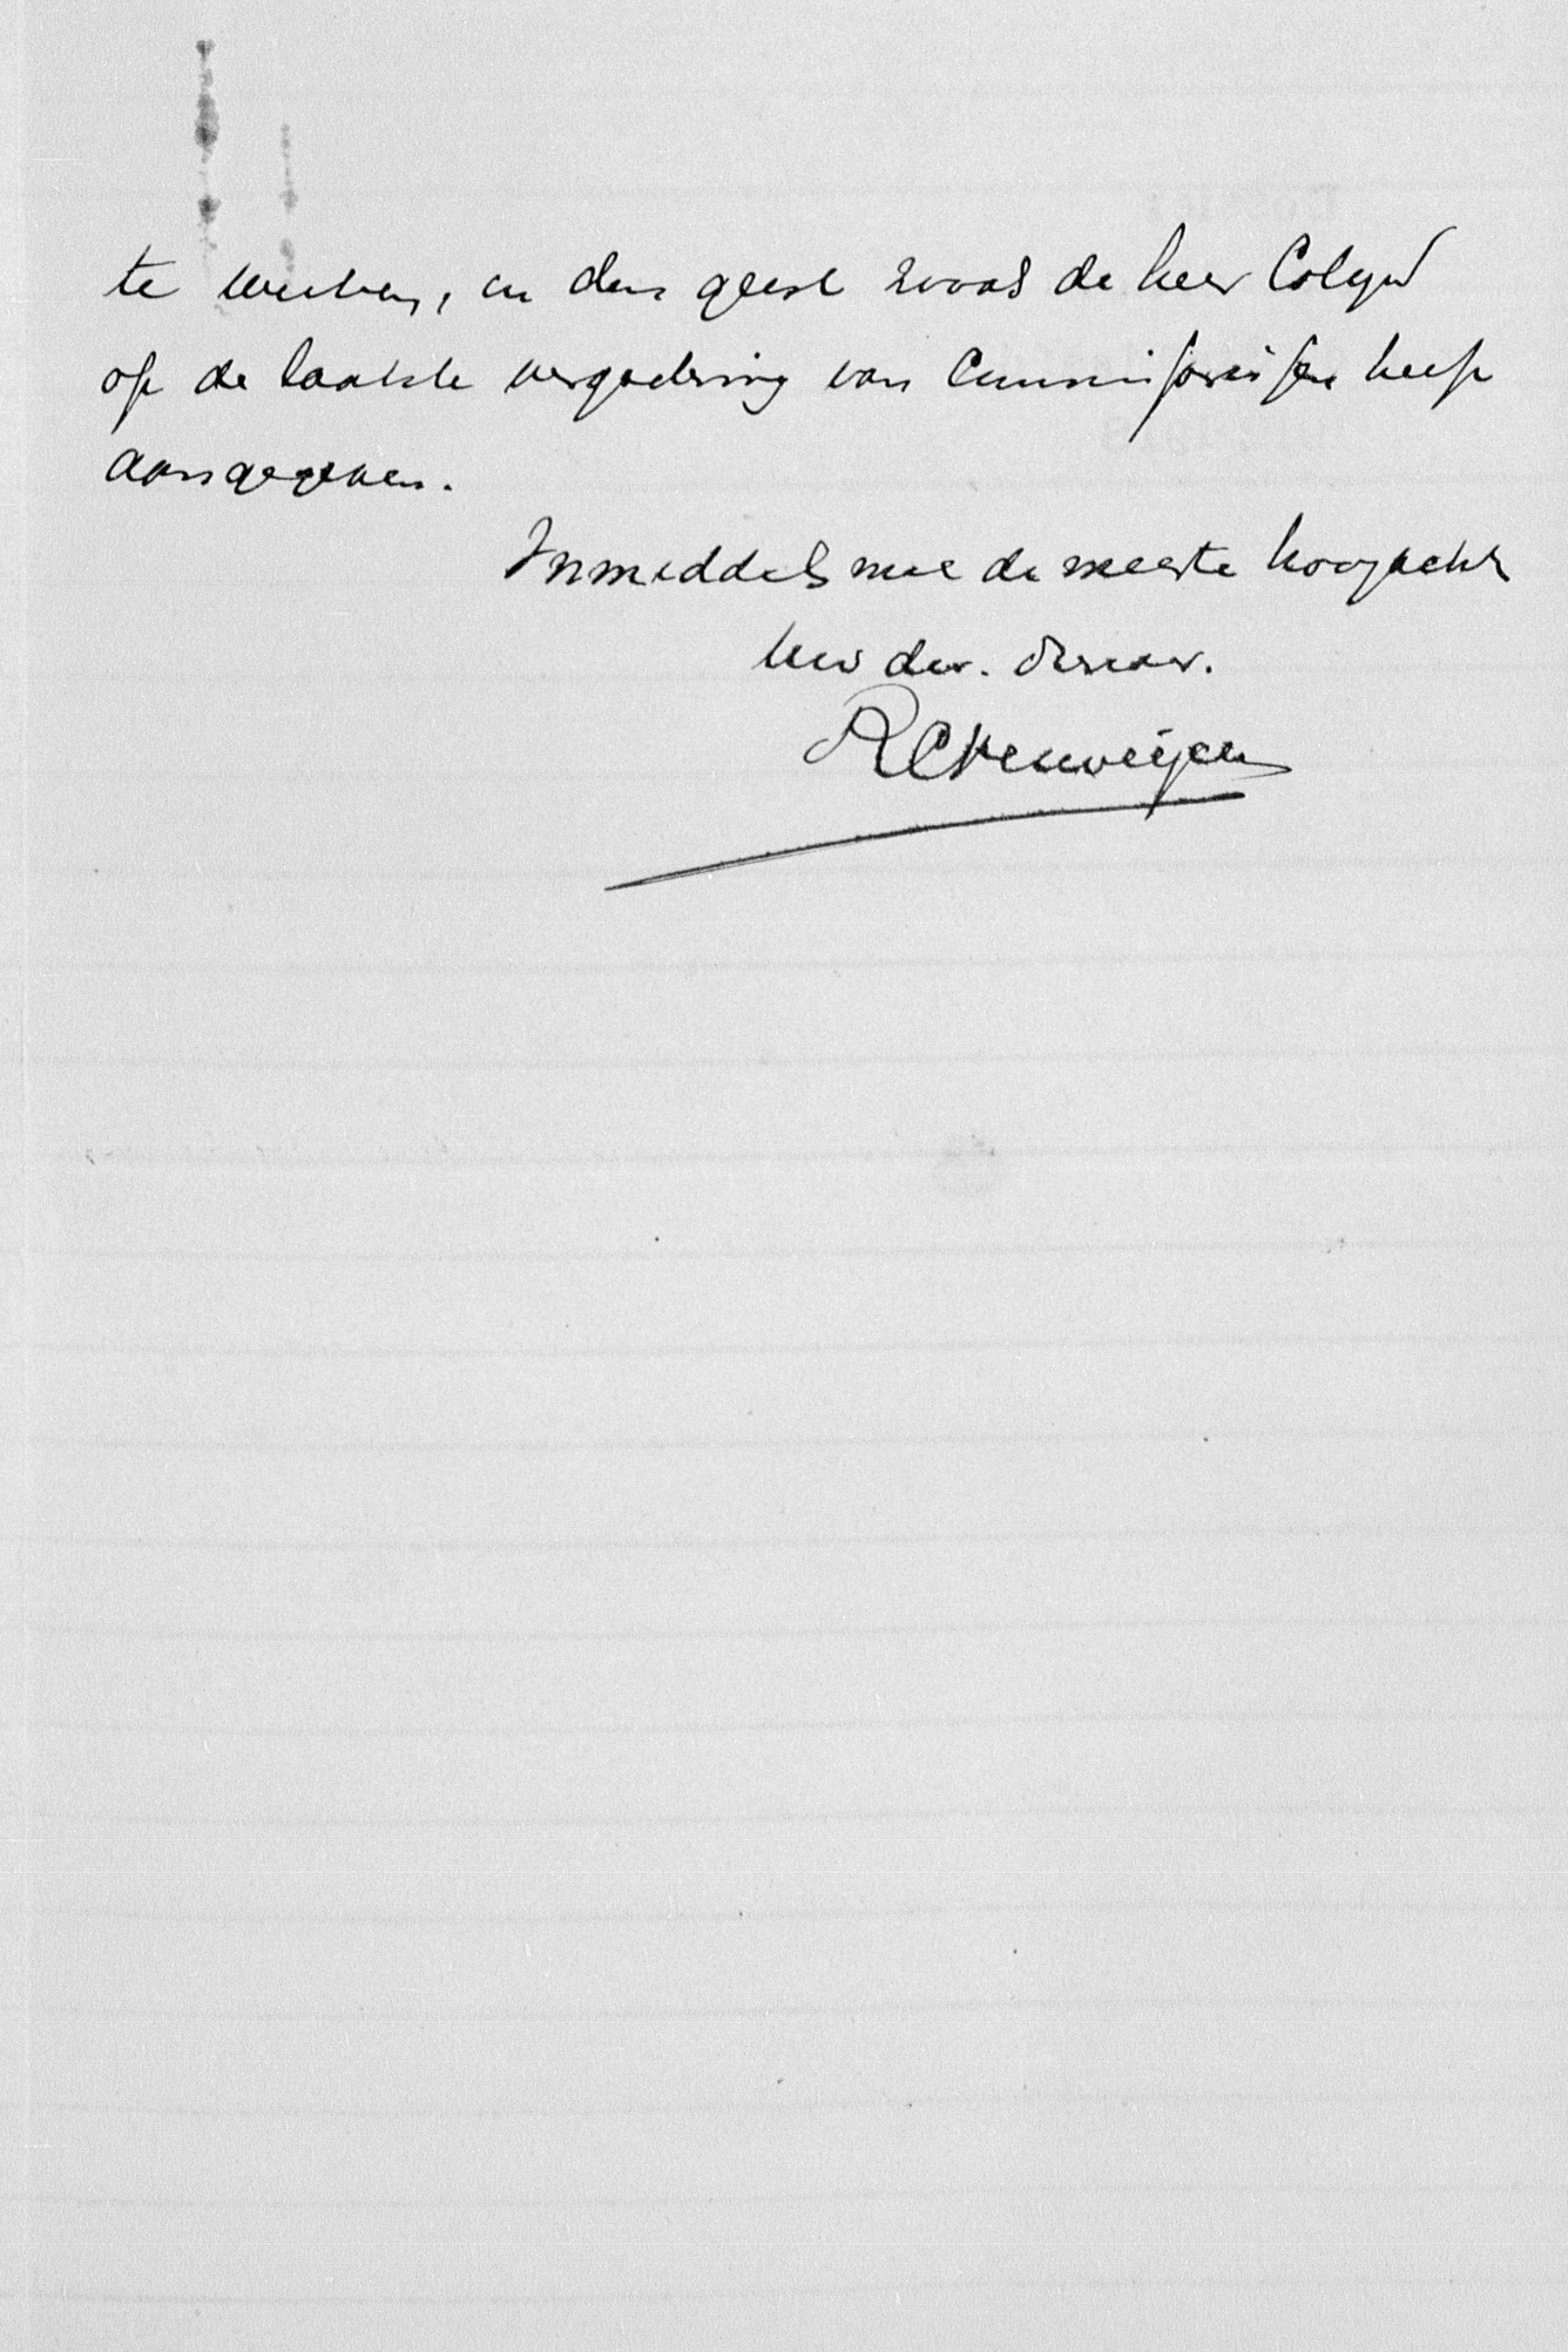 te werken, in den geest zooals de heer Colijn
op de laatste vergadering van Commissarissen heeft
aangegeven.
Inmiddels met de meeste hoogacht.
Uw dw. dienaar.